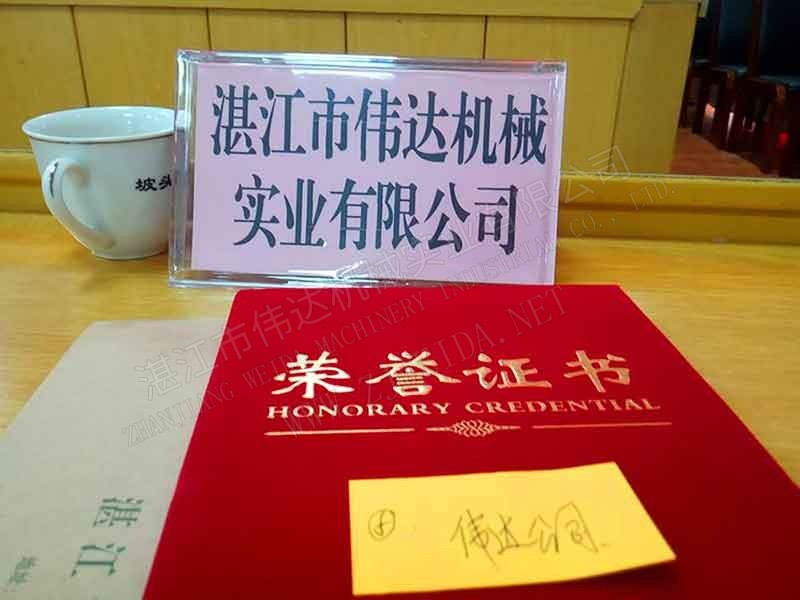 湛江市伟达机械
实业有限公司
坡头
荣誉证书
HONORARY CREDENTIAL
伟达公司
湛江
湛江市伟达机械实业有限公司
ZHANJIANG WEIDA MACHINERY INDUSTRIAL CO., LTD.